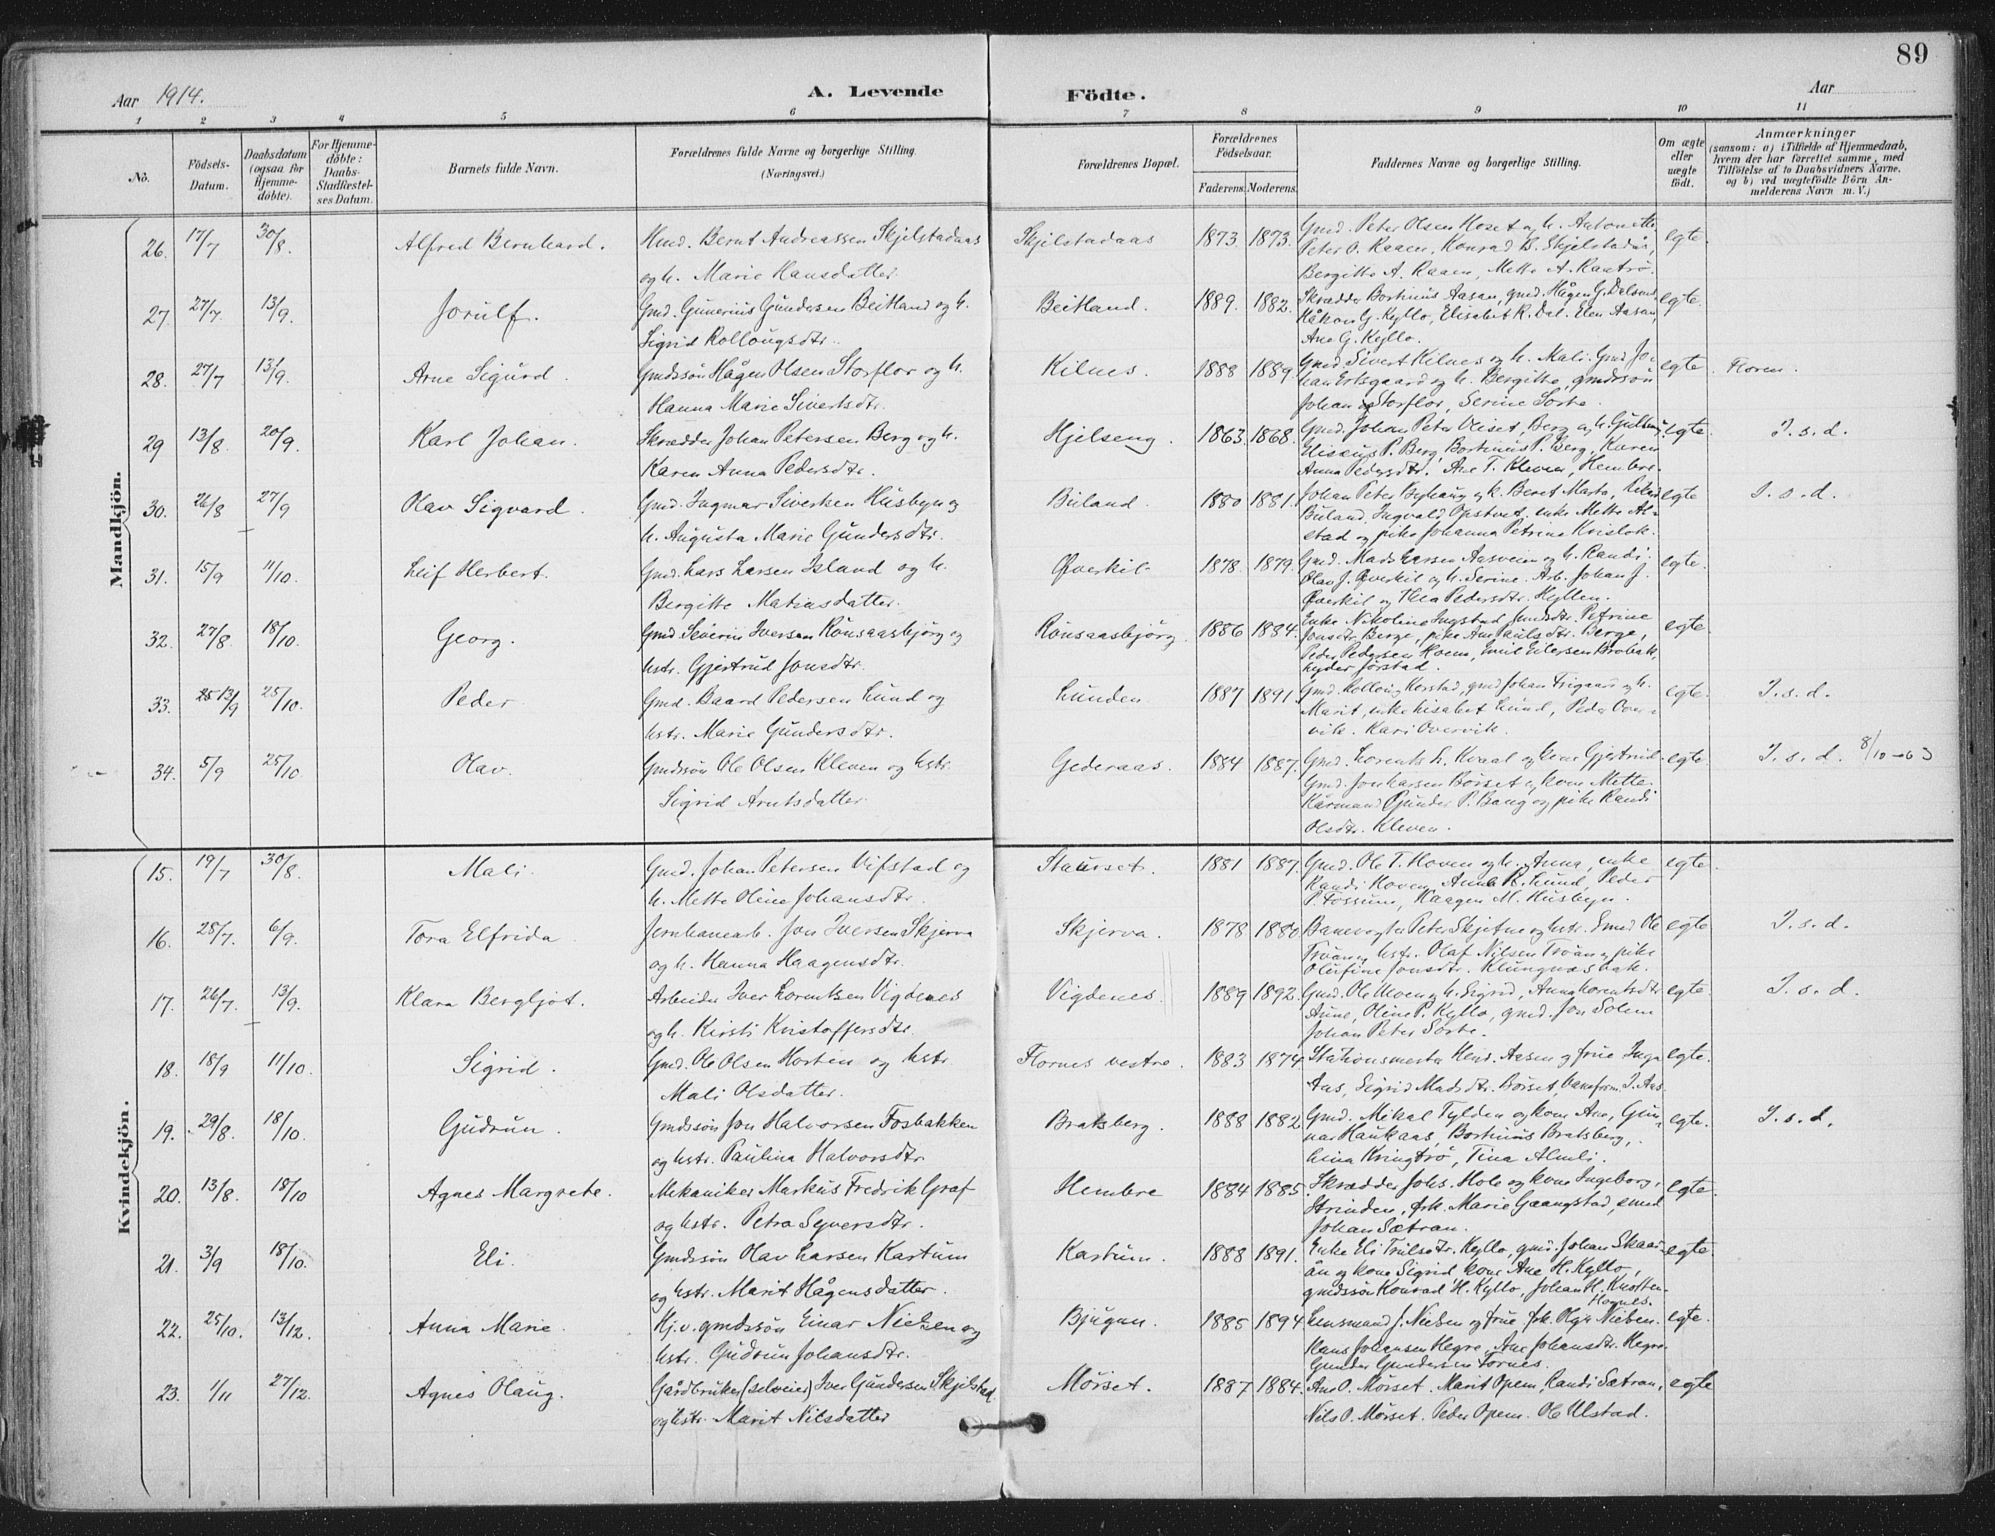 89
Aar 1914.
A. Levende Födte.
Aar
1 2 3 4 5 6 7 8 9 10 11
No.
Födsels-Datum.
Daabsdatum (ogsaa for Hjemmedöbte).
For Hjemmedöbte: Daabs-Stadfæstelses Datum.
Barnets fulde Navn.
Forældrenes fulde Navne og borgerlige Stilling. (Næringsvei.)
Forældrenes Bopæl.
Forældrenes Födselsaar.
Faderens. Moderens.
Faddernes Navne og borgerlige Stilling.
Om ægte eller uægte födt.
Anmærkninger (saasom: a) i Tilfælde af Hjemmedaab, hvem der har forrettet samme, med Tilföielse af to Daabsvidners Navne. og b) ved uægtefödte Börn Anmelderens Navn m. V.)
Mandkjön.
26. 17/7 30/8. Alfred Bernhard. Hmd. Bernt Andreassen Skjelstadaas Skjelstadaas 1873. 1873. Gmd. Peter Olsen Hoset og h. Antonette egte.
og h. Marie Hansdatter Peter O. Raaen, Konrad B. Skjelstadås,
Bergitte A. Raaen, Mette A.
27. 27/7 13/9. Jorulf. Gmd. Gunerius Gundersen Beitland og h. Beitland. 1889. 1882. Skrædder Bortinus Aasan, gmd. Hågen G. egte.
Sigrid Rollougsdtr. Håkon G. Kyllo, Elisabet R. Dal. Elen Aasan,
Ane G. Kyllo.
28. 27/7 13/9. Arne Sigurd. Gmdssøn Hågen Olsen Storflor og h. Kilnes. 1888 1889 Gmd. Sivert Kilnes og h. Mali. Gmd Jo- egte. Floren.
Hanna Marie Sivertsdtr. han Ertsgaard og h. Bergitte, gmdssøn
Johan Storflor, Serine Sorte.
29 13/8. 20/9. Karl Johan. Skrædder Johan Petersen Berg og h. Hjelseng. 1863. 1868. Gmd. Johan Peter Berg og h. egte. I.s.d.
Karen Anna Pedersdtr. P. Berg, Bortinus P. Berg, Karen
Anna Pedersdtr. Ane T. Kleven, Hembre.
30. 26/8 27/9 Olav Sigvard. Gmd. Ingmar Sivertsen Husbyn og Buland. 1880 1881. Johan Peter og h. Beret Marta, egte I.s.d.
h. Augusta Marie Gundersdtr. Buland, Ingvald Opstvet, enke Mette Al-
stad og pike Johanna Petrine
31. 15/9 11/10. Leif Herbert. Gmd. Lars Larsen Island og h. Øverkil 1878. 1879. Gmd. Mads Larsen Aasveien og h. Randi. egte.
Bergitte Matiasdatter. Olav J. Øverkil og h. Serine. Arb. Johan J.
Øverkil og Thea Pedersdtr. Hyllen.
32. 27/8. 18/10. Georg. Gmd Severin Iversen Rönsaasbjörg og Rönsaasbjörg. 1886 1884. Enke Nikoline Ingstad Petrine egte.
hstr. Gjertrud Jonsdtr. Jonsdtr. Berge, pike Ane Paulsdtr. Berge,
Peder Pedersen Hoem, Emil Eilersen Brobak,
Jørstad.
33. 13/9 25/10. Peder. Gmd. Baard Pedersen Lund og Lunden 1887 1891. Gmd. Rolloug Korstad, gmd Johan og h. egte. I.s.d.
hstr. Marie Gundersdtr. Marit, enke Lisabet Lund, Peder Over-
vik. Kari Overvik.
34. 5/9 25/10. Olav. Gmdssön Ole Olsen Kleven og hstr. Gederaas. 1884 1887. Gmd. Lorents L. Kvaal og kone Gjertrud. egte. I.s.d. 8/10-63
Sigrid Arntsdatter Gmd. Jon Larsen Börset og kone Mette.
Gunder P. Bang og pike Randi
Olsdtr. Kleven.
Kvindekjön.
15. 19/7 30/8. Mali. Gmd. Johan Petersen Vifstad og Staurset. 1881 1887. Gmd. Ole T. Hoven og h. Anna, enke egte.
h. Mette Oline Johansdtr. Randi Hoven, Anne B. Lund, Peder
P. Fossum, Haagen M. Husbyn.
16. 25/7. 6/9. Tora Elfrida Jernbanearb. Jon Iversen Skjerva Skjerva. 1878 1880 Banevogter Peter Skjetne og hstr. Smed Ole egte I.s.d.
og h. Hanna Haagensdtr. Trøan og hstr. Olaf Nilsen Trøan og pike
Olufine Jonsdtr. Klungnæsbak.
17. 26/7. 13/9. Klara Bergljot. Arbeider Iver Lorentsen Vigdenes Vigdenes. 1889 1892. Gmd. Ole Moen og h. Sigrid, Anna Lorentsdtr egte. I.s.d.
og h. Kirsti Kristoffersdtr. Aune, Oline P. Kyllo, gmd. Jon Solem
Johan Peter Sorte.
18. 18/9 11/10. Sigrid. Gmd. Ole Olsen Horten og hstr. Flornes vestre. 1883 1874 Stationsmester Hend. Aasen og frue Inga egte.
Mali Olsdatter. Aas, Sigrid Madsdtr. Börset, baneform. J. Aas.
19. 29/8. 18/10. Gudrun. Gmdssön Jon Halvorsen Fosbakken Bratsberg. 1888 1882 Gmd. Mikal Tylden og kone Ane, Gun- egte. I.s.d.
og hstr. Paulina Halvorsdtr nar Haukaas, Bortinus Bratsberg,
Lina Kringtrö, Tina Almli.
20. 13/8. 18/10 Agnes Margrete. Mekaniker Markus Fredrik Graf Hembre 1884 1885. Skrædder Johs. Holo og kone Ingeborg, egte.
og hstr. Petra Syversdtr. Strinden, frk. Marie Gaangstad, smed
Johan Sætran.
21. 3/9 18/10. Eli. Gmdssön Olav Larsen Kartum Kartum. 1888 1891. Enke Eli Trulsdtr. Kyllo, gmd. Johan Skaar- egte.
og hstr. Marit Hågensdatter. ån og kone Sigrid kone Ane H. Kyllo,
gmdssön Konrad H. Kyllo, Johan H.
22. 25/10. 13/12. Anna Marie. Hj.v. gmdssön Einar Nielsen og Bjugun. 1885 1894 Lensmand J. Nielsen og frue frk. Olga Nielsen. egte.
hstr. Gudrun Johansdtr. Hans Johansen Hegre, Ane Johansdtr. Hegre
Gunder Gundersen Fornes.
23. 1/11 27/12. Agnes Olaug. Gårdbruker (selveier) Iver Gundersen Skjelstad Mørset. 1887 1884. Ane O. Mørset. Marit Opem, Randi Sætran, egte
og hstr. Marit Nilsdatter Nils O. Mørset. Peder Opem. Ole Ulstad.